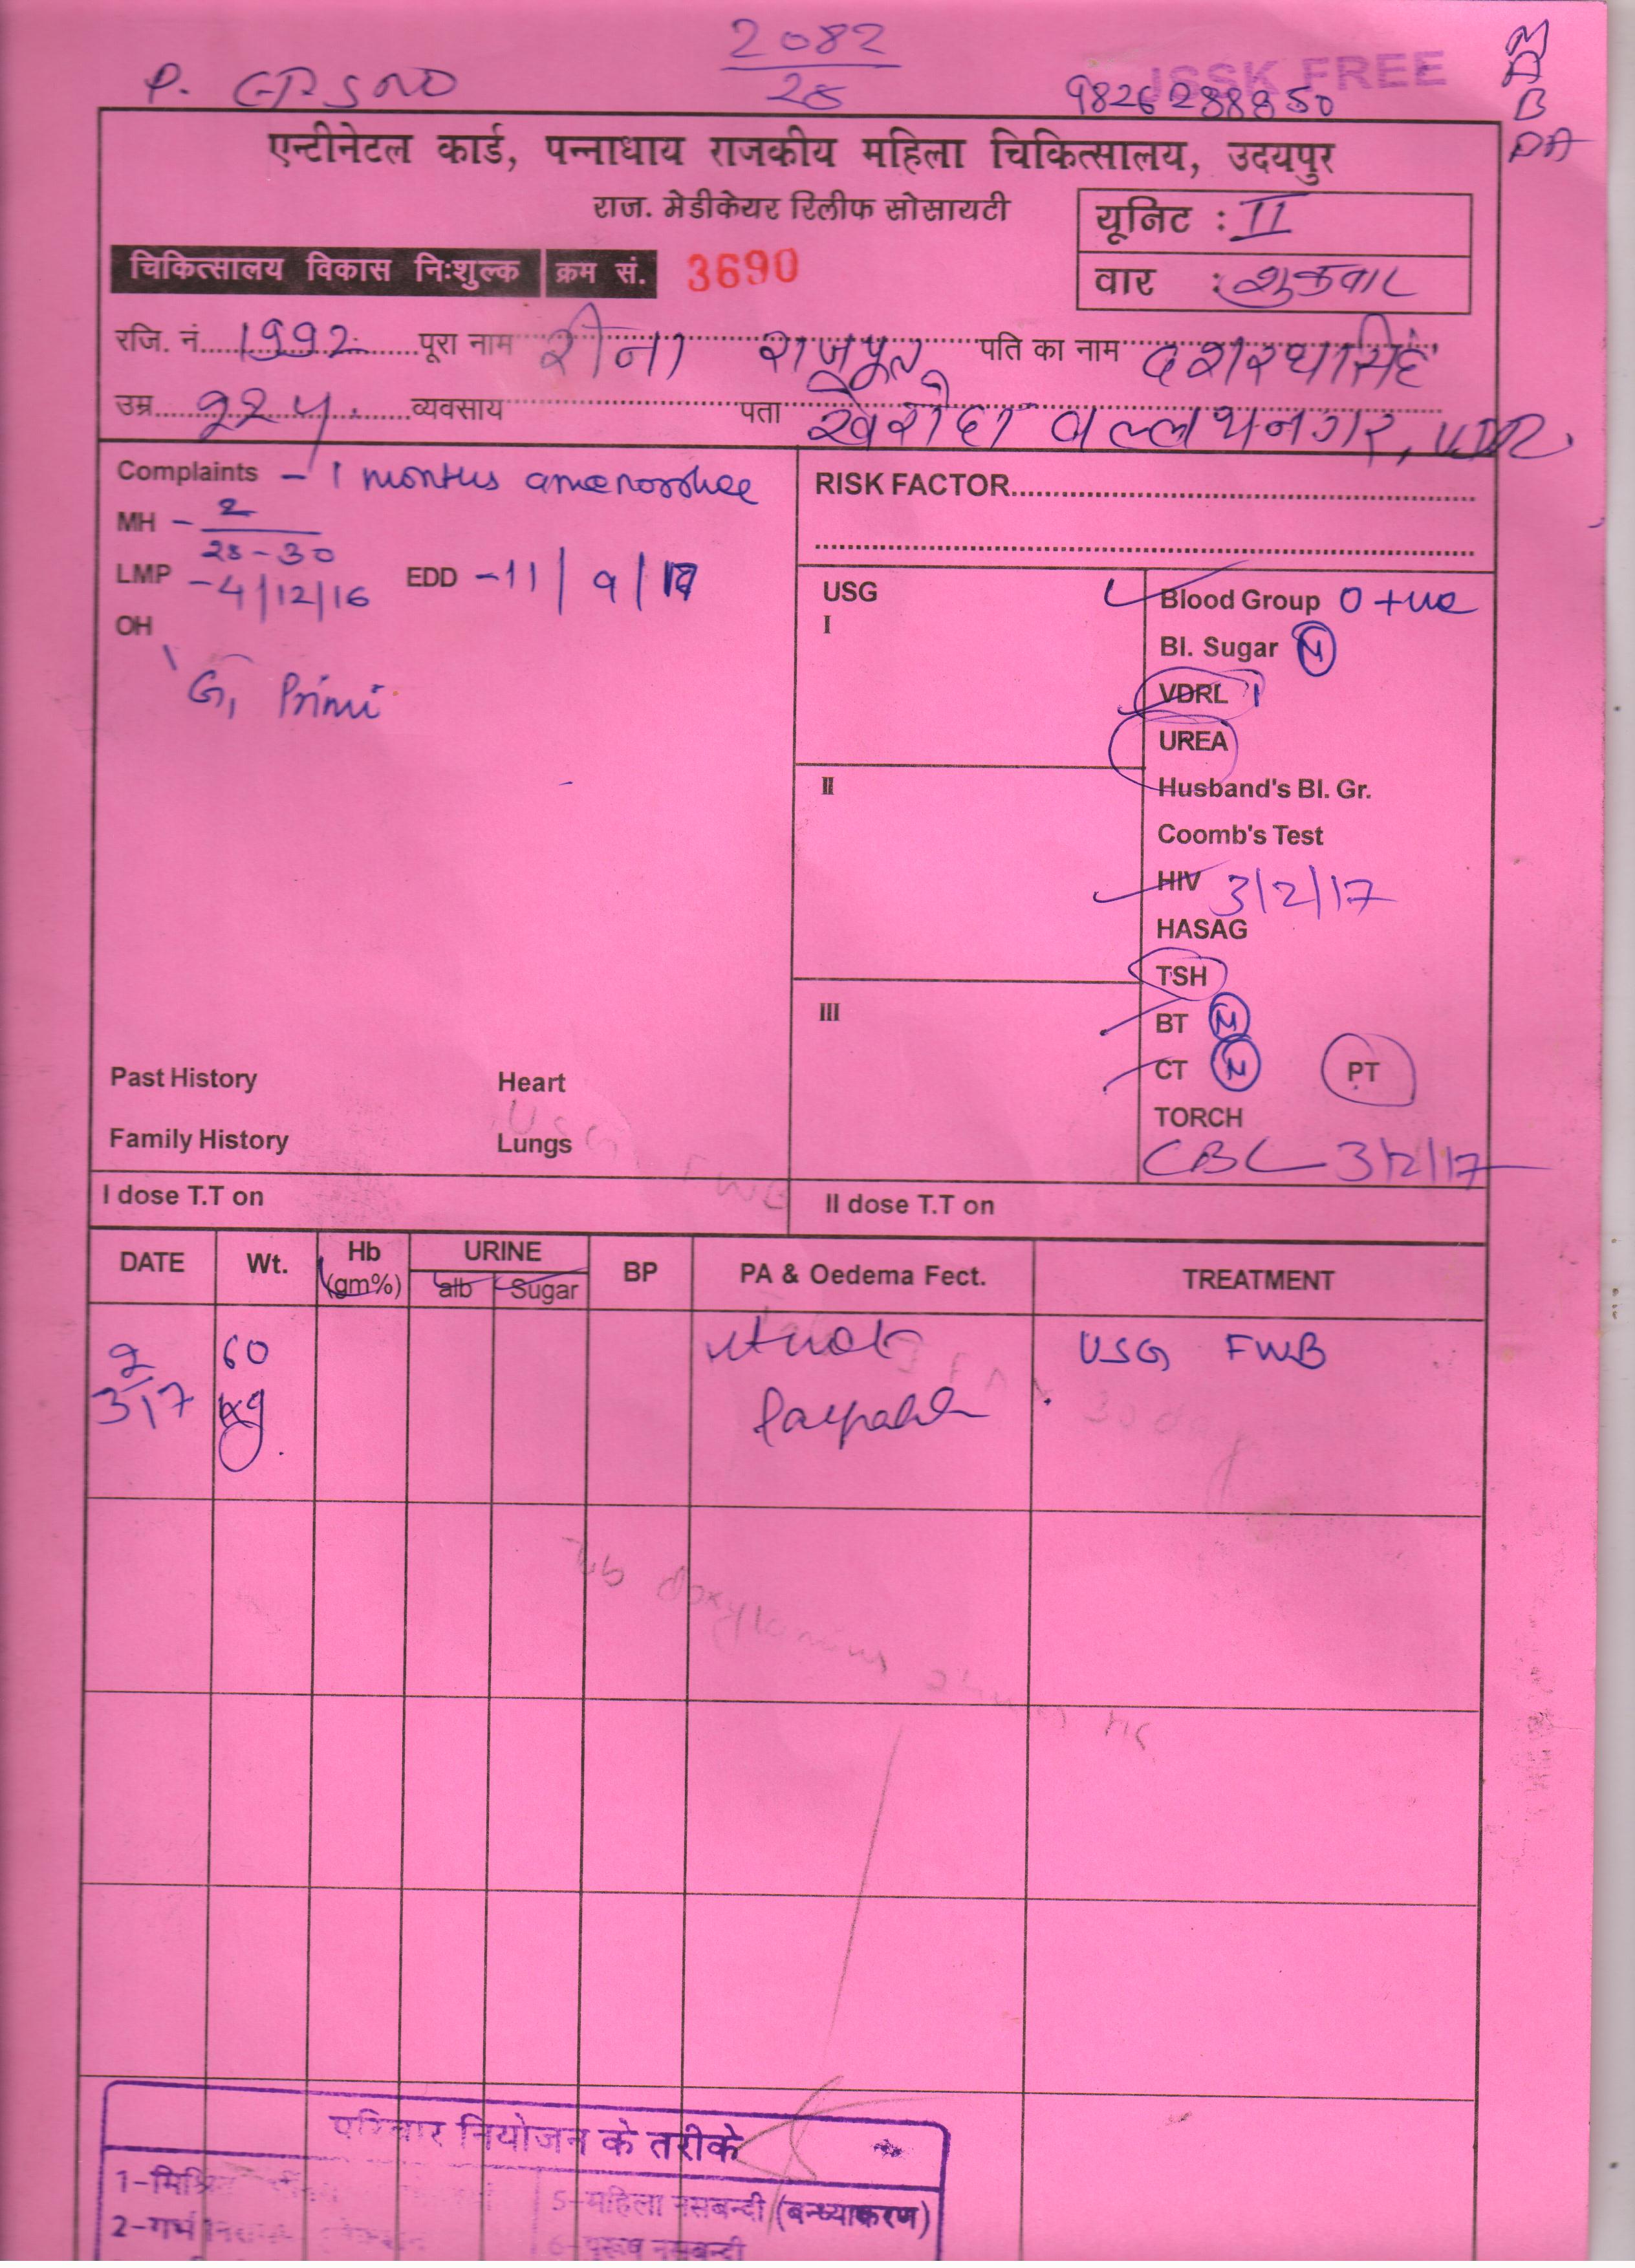 2082
28
JSSK FREE
9826288850
B
PA
एन्टीनेटल कार्ड, पन्नाधाय राजकीय महिला चिकित्सालय, उदयपुर
राज. मेडीकेयर रिलीफ सोसायटी
यूनिट : II
चिकित्सालय विकास निःशुल्क क्रम सं. 3690
वार : शुक्रवार
रजि. नं. 1992 पूरा नाम रीना राजपूत पति का नाम दशरथसिंह
उम्र व्यवसाय पता खेरोदा वल्लभनगर, UDR
Complaints - 1 months amenorrhee
RISK FACTOR
MH - 2
28-30
LMP - 4/12/16 EDD - 11/9/17
OH
G1 Primi
USG
I
II
III
Blood Group O +ve
Bl. Sugar N
VDRL
UREA
Husband's Bl. Gr.
Coomb's Test
HIV 3/2/17
HASAG
TSH
BT N
CT N PT
TORCH
CBC 3/2/17
Past History Heart
Family History Lungs
I dose T.T on II dose T.T on
DATE Wt. Hb (gm%) URINE alb Sugar BP PA & Oedema Fect. TREATMENT
3/2/17 60 kg USG FWB
परिवार नियोजन के तरीके
5-महिला नसबन्दी (बन्ध्याकरण)
6-पुरूष नसबन्दी